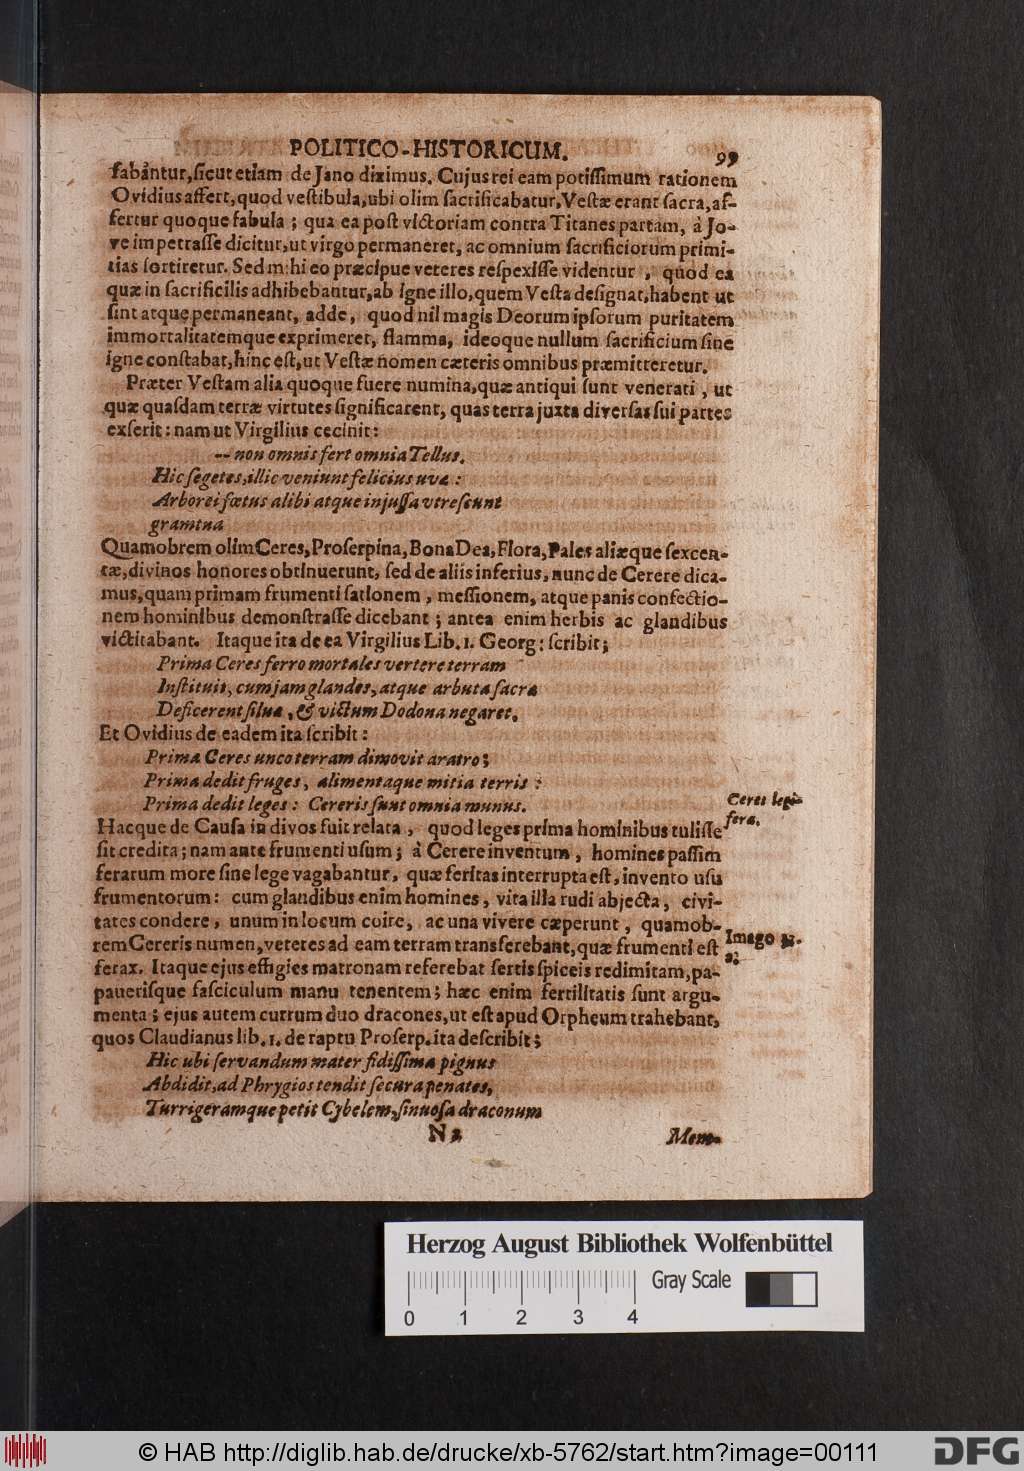 POLITICO-HISTORICUM. 99
fabantur, ſicut etiam de Jano diximus. Cujus rei eam potiſſimum rationem
Ovidius affert, quod veſtibula, ubi olim ſacrificabatur, Veſtæ erant ſacra, af-
fertur quoque fabula; qua ea poſt victoriam contra Titanes partam, à Jo-
ve impetraſſe dicitur, ut virgo permaneret, ac omnium ſacrificiorum primi-
tias ſortiretur. Sed mihi eo præcipue veteres reſpexiſſe videntur, quod ea
quæ in ſacrificiis adhibebantur, ab igne illo, quem Veſta deſignat, habent ut
ſint atque permaneant, adde, quod nil magis Deorum ipſorum puritatem
immortalitatemque exprimeret, flamma, ideoque nullum ſacrificium ſine
igne conſtabat, hinc eſt, ut Veſtæ nomen cæteris omnibus præmitteretur.
Præter Veſtam alia quoque fuere numina, quæ antiqui ſunt venerati, ut
quæ quaſdam terræ virtutes ſignificarent, quas terra juxta diverſas ſui partes
exſerit: nam ut Virgilius cecinit:
-- non omnis fert omnia Tellus.
Hic ſegetes, illic veniunt felicius uvæ:
Arborei fœtus alibi atque injuſſa vireſcunt
gramina
Quamobrem olim Ceres, Proſerpina, Bona Dea, Flora, Pales aliæque ſexcen-
tæ, divinos honores obtinuerunt, ſed de aliis inferius, nunc de Cerere dica-
mus, quam primam frumenti ſationem, meſſionem, atque panis confectio-
nem hominibus demonſtraſſe dicebant; antea enim herbis ac glandibus
victitabant. Itaque ita de ea Virgilius Lib. 1. Georg: ſcribit;
Prima Ceres ferro mortales vertere terram
Inſtituit, cum jam glandes, atque arbuta ſacra
Deficerent ſilvæ, & victum Dodona negaret.
Et Ovidius de eadem ita ſcribit:
Prima Ceres unco terram dimovit aratro;
Prima dedit fruges, alimentaque mitia terris:
Prima dedit leges: Cereris ſunt omnia munus.
Ceres legi-
fera.
Hacque de Cauſa in divos fuit relata, quod leges prima hominibus tuliſſe
ſit credita; nam ante frumenti uſum; à Cerere inventum, homines paſſim
ferarum more ſine lege vagabantur, quæ feritas interrupta eſt, invento uſu
frumentorum: cum glandibus enim homines, vita illa rudi abjecta, civi-
tates condere, unum in locum coire, ac una vivere cæperunt, quamob-
rem Cereris numen, veteres ad eam terram transferebant, quæ frumenti eſt
Imago
ferax. Itaque ejus effigies matronam referebat ſertis ſpiceis redimitam, pa-
paueriſque faſciculum manu tenentem; hæc enim fertilitatis ſunt argu-
menta; ejus autem currum duo dracones, ut eſt apud Orpheum trahebant,
quos Claudianus lib. 1. de raptu Proſerp. ita deſcribit;
Hic ubi ſervandum mater fidiſſima pignus
Abdidit, ad Phrygios tendit ſecura penates,
Turrigeramque petit Cybelem, ſinuoſa draconum
N 2 Mem-
Herzog August Bibliothek Wolfenbüttel
Gray Scale
0 1 2 3 4
© HAB http://diglib.hab.de/drucke/xb-5762/start.htm?image=00111
DFG